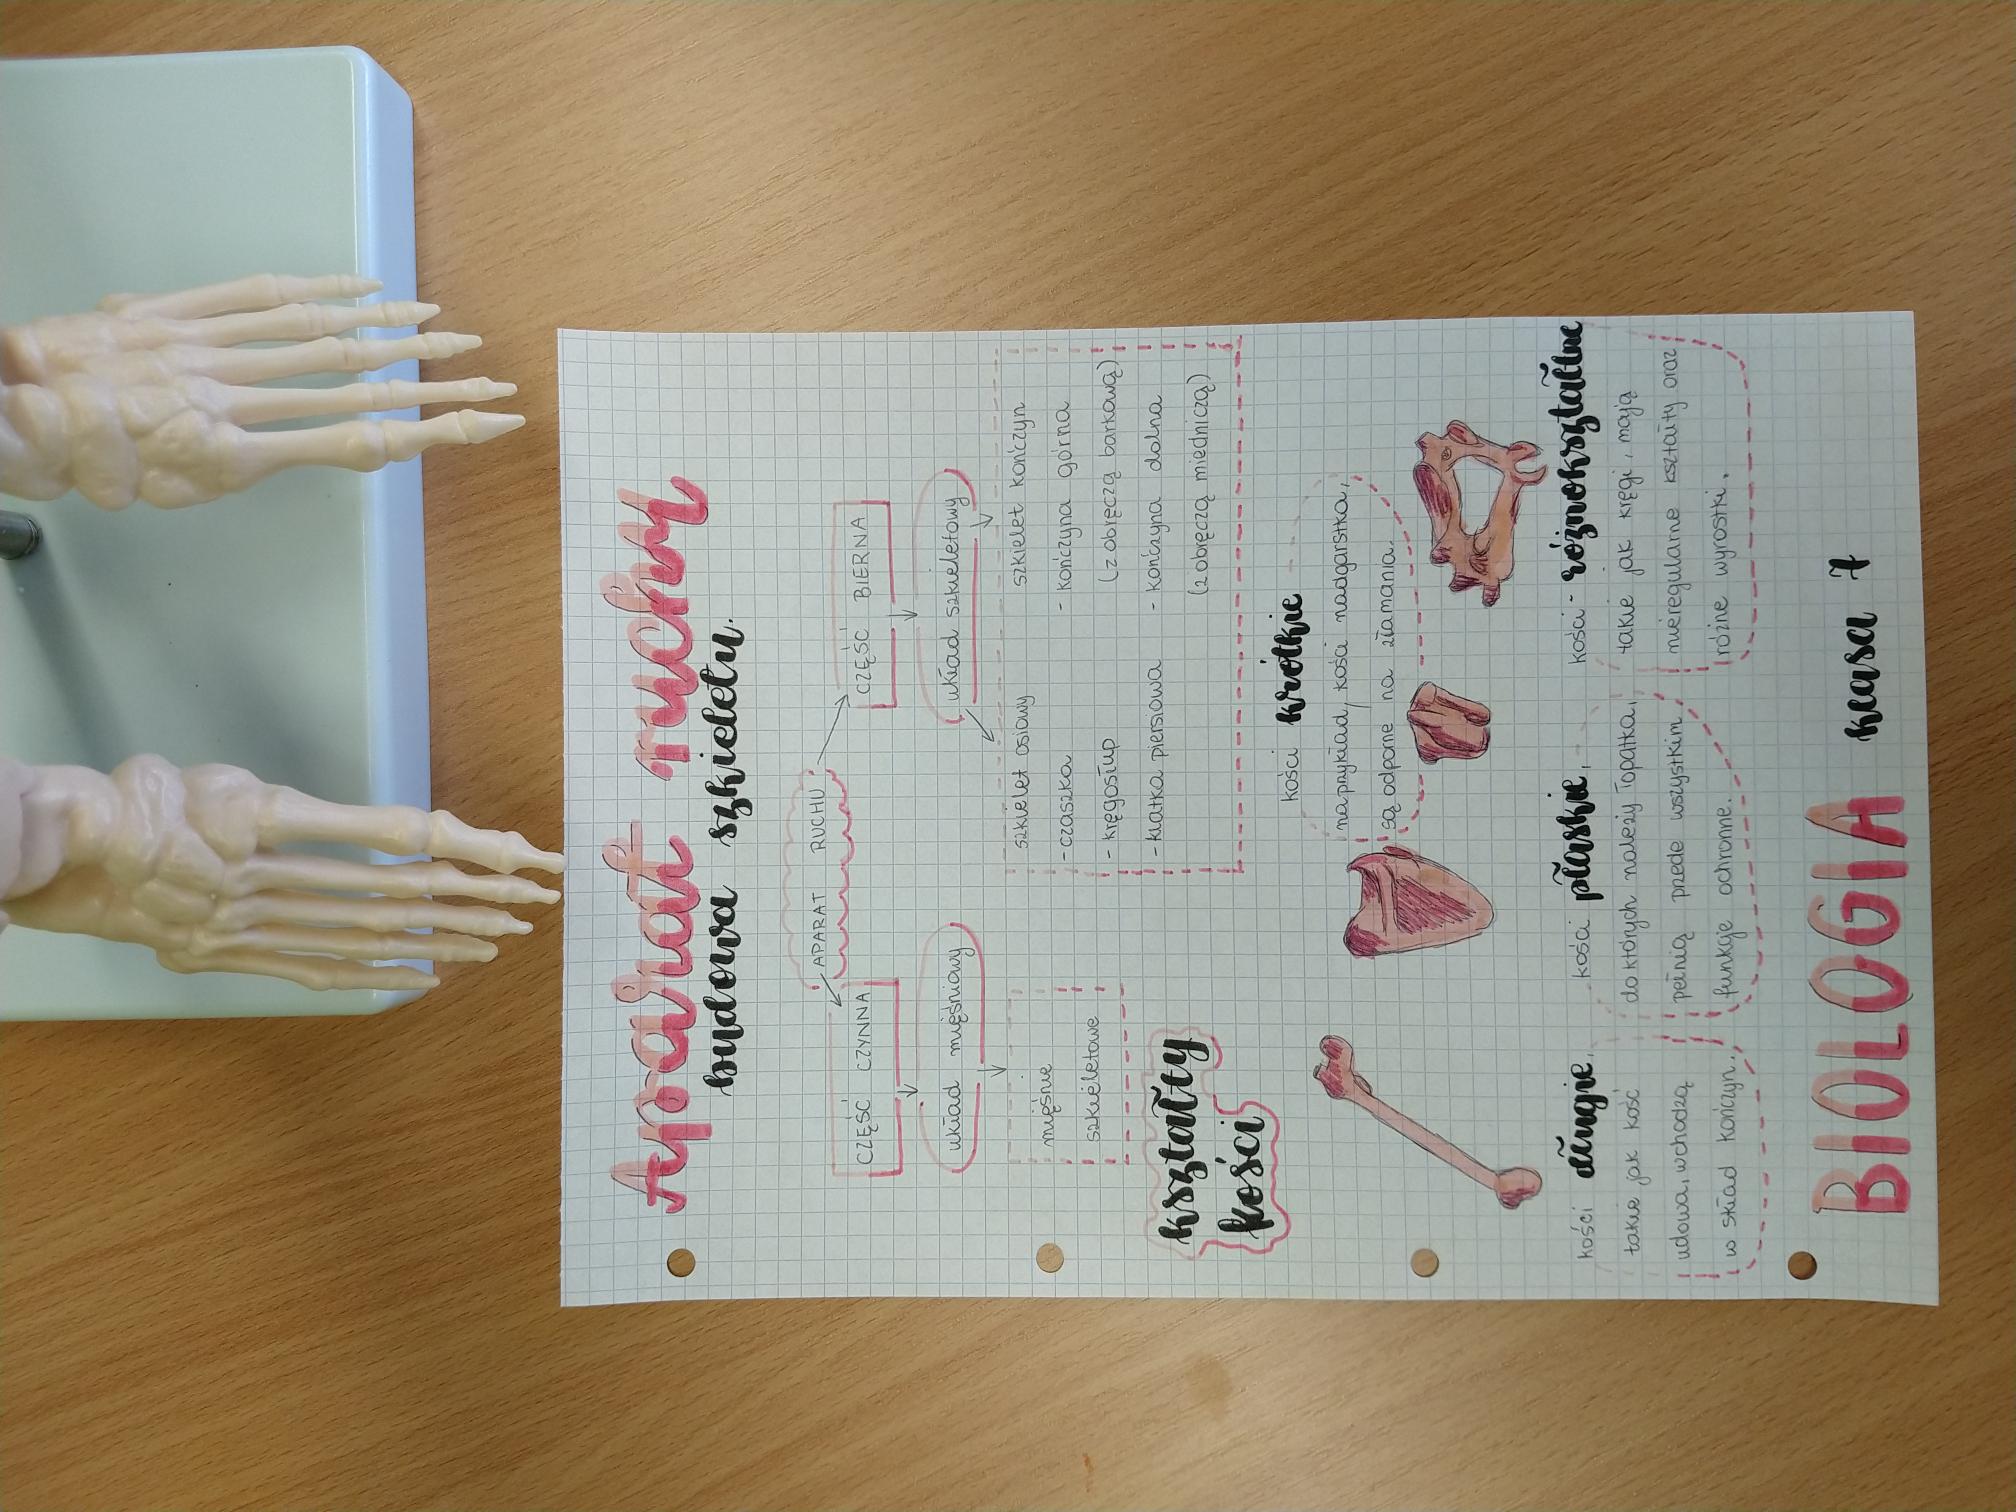 Aparat ruchu
budowa szkieletu.
APARAT RUCHU
CZĘŚĆ CZYNNA
CZĘŚĆ BIERNA
układ mięśniowy
układ szkieletowy
mięśnie
szkieletowe
szkielet osiowy
- czaszka
- kręgosłup
- klatka piersiowa
szkielet kończyn
- kończyna górna
(z obręczą barkową)
- kończyna dolna
(z obręczą miedniczą)
kształty
kości
kości krótkie
na przykład, kości nadgarstka,
są odporne na złamania.
kości długie,
takie jak kość
udowa, wchodzą
w skład kończyn.
kości płaskie,
do których należy łopatka,
pełnią przede wszystkim
funkcje ochronne.
kości - różnokształtne
takie jak kręgi, mają
nieregularne kształty oraz
różne wyrostki.
BIOLOGIA klasa 7